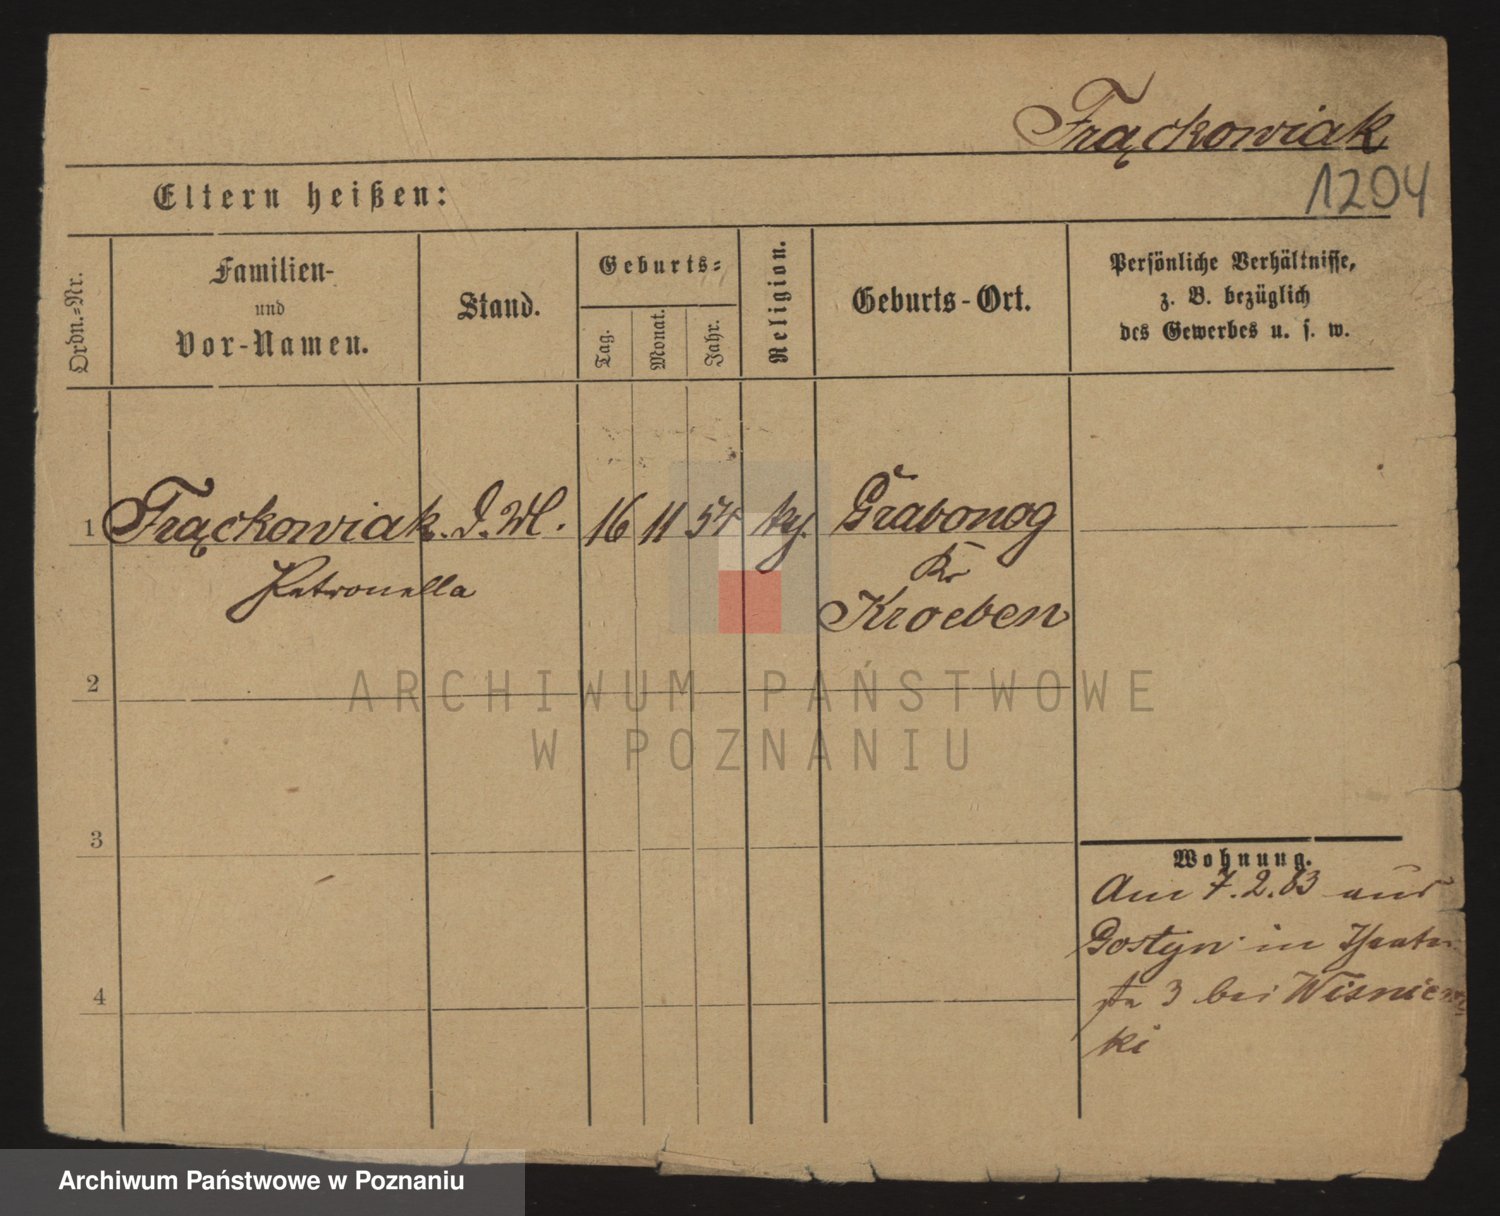 Frąckowiak
1204
Eltern heißen:
Ordn.-Nr.
Familien-
und
Vor-Namen.
Stand.
Geburts-
Tag.
Monat.
Jahr.
Religion.
Geburts-Ort.
Persönliche Verhältnisse,
z. B. bezüglich
des Gewerbes u. s. w.
1 Frąckowiak. 16 11 54 Grabonog
Petronella
Kr
Kroeben
2
3
4
Wohnung.
Am 7.2.83 aus
Gostyn in
3 bei Wisniews
ki
ARCHIWUM PAŃSTWOWE
W POZNANIU
Archiwum Państwowe w Poznaniu